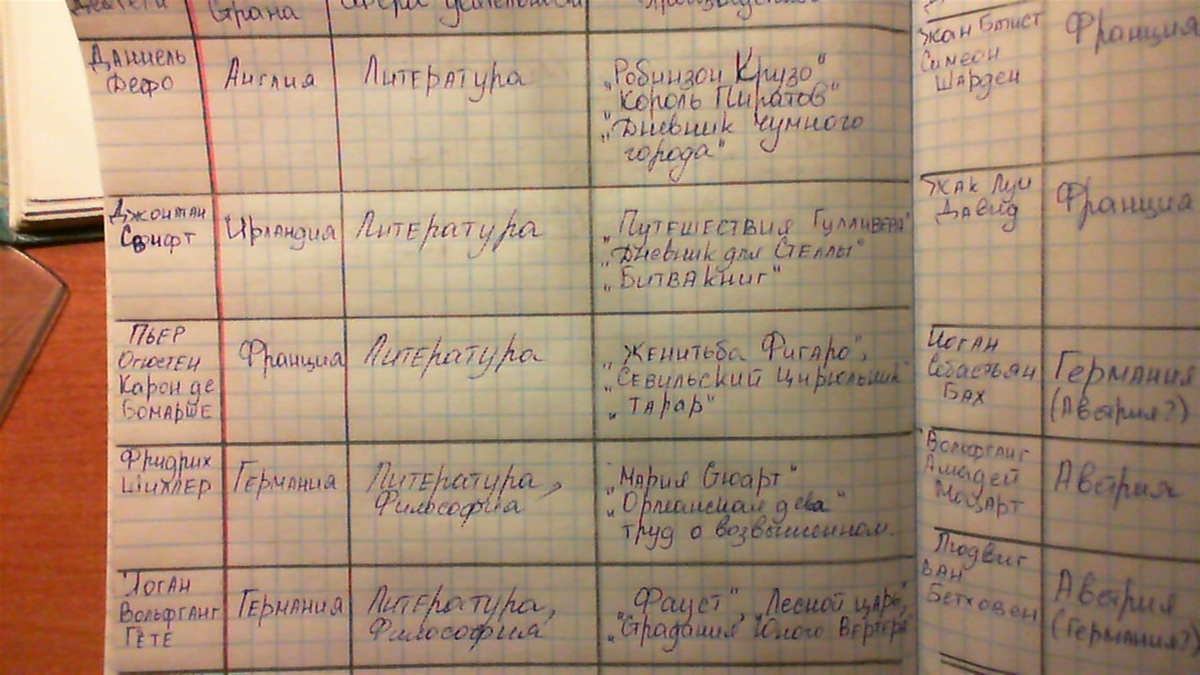 Страна
Даниель
Дефо
Англия
Литература
„Робинзон Крузо"
„Король Пиратов"
„Дневник чумного
города"
Джонтан
Свифт
Ирландия
Литература
„Путешествия Гулливера"
„Дневник для Стеллы"
„Битва книг"
Пьер
Огюстен
Карон де
Бомарше
Франция
Литература
„Женитьба Фигаро",
„Севильский цирюльник"
„Тарар"
Фридрих
Шиллер
Германия
Литература,
Философия
„Мария Стюарт"
„Орлеанская дева"
труд о возвышенном.
Йоган
Вольфганг
Гёте
Германия
Литература,
Философия
„Фауст", „Лесной царь",
„Страдания Юного Вертера"
Жан Батист
Симеон
Шарден
Франция
Жак Луи
Давид
Франция
Йоган
Себастьян
Бах
Германия
(Австрия?)
Вольфганг
Амадей
Моцарт
Австрия
Людвиг
Ван
Бетховен
Австрия
(Германия?)